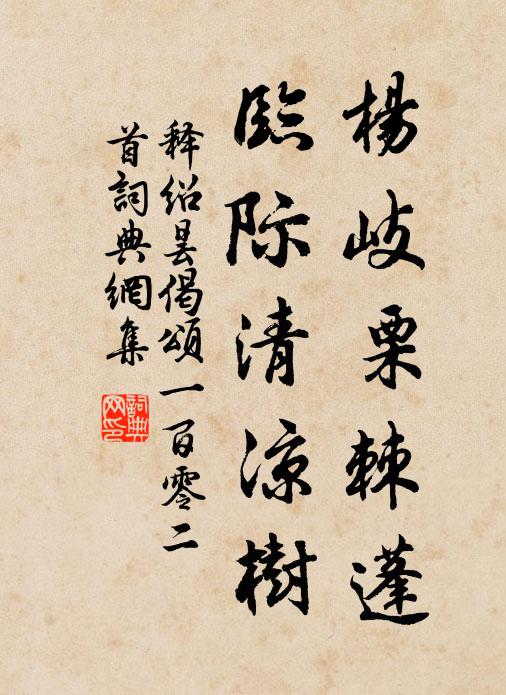 楊岐栗棘蓬
臨际清凉樹
释绍昙偈頌一百零二
首詞典網集
詞典
网印